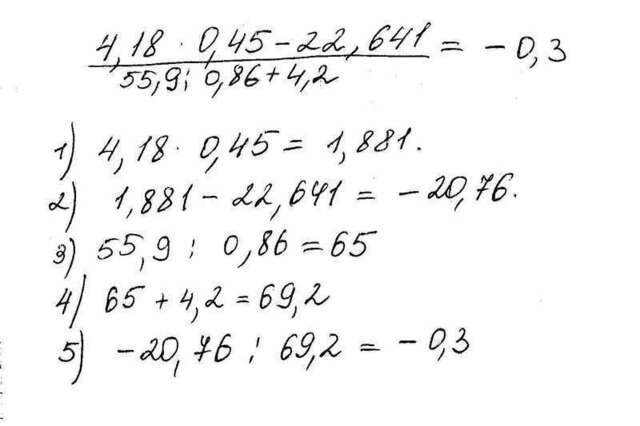 4,18 · 0,45 - 22,641 = - 0,3
55,9 : 0,86 + 4,2
1) 4,18 · 0,45 = 1,881.
2) 1,881 - 22,641 = - 20,76.
3) 55,9 : 0,86 = 65
4) 65 + 4,2 = 69,2
5) - 20,76 : 69,2 = - 0,3